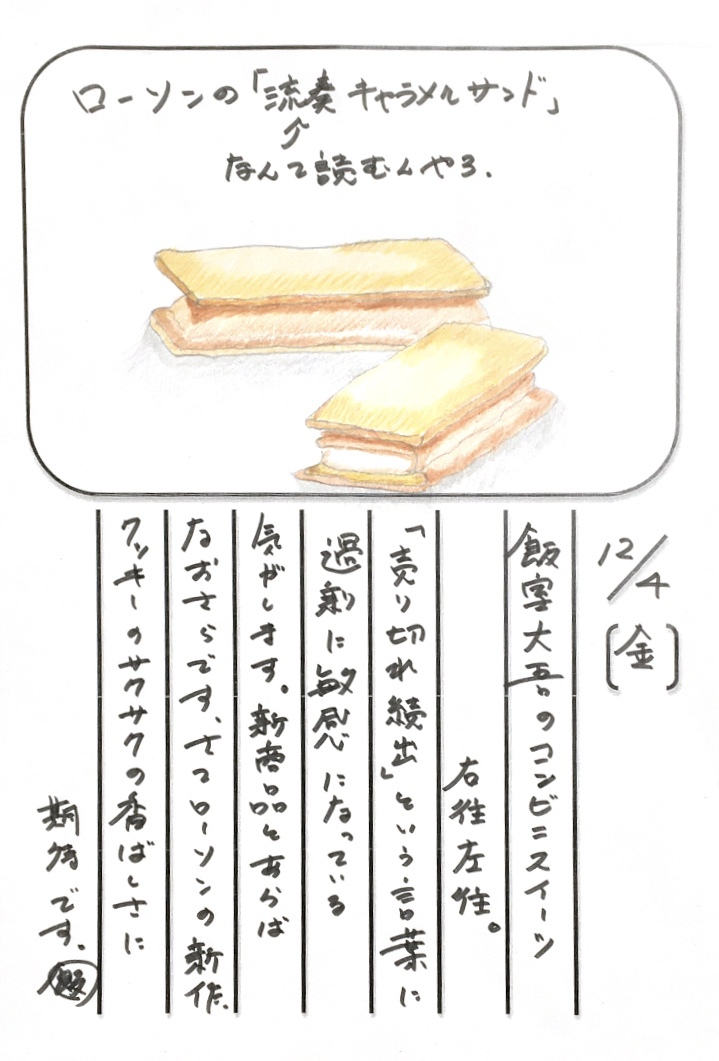 ローソンの「流奏キャラメルサンド」
なんて読むんやろ.
12/4
(金)
飯室大吾のコンビニスイーツ
右往左往。
「売り切れ続出」という言葉に
過剰に敏感になっている
気がします。新商品とあらば
なおさらです、さてローソンの新作、
クッキーのサクサクの香ばしさに
期待です。